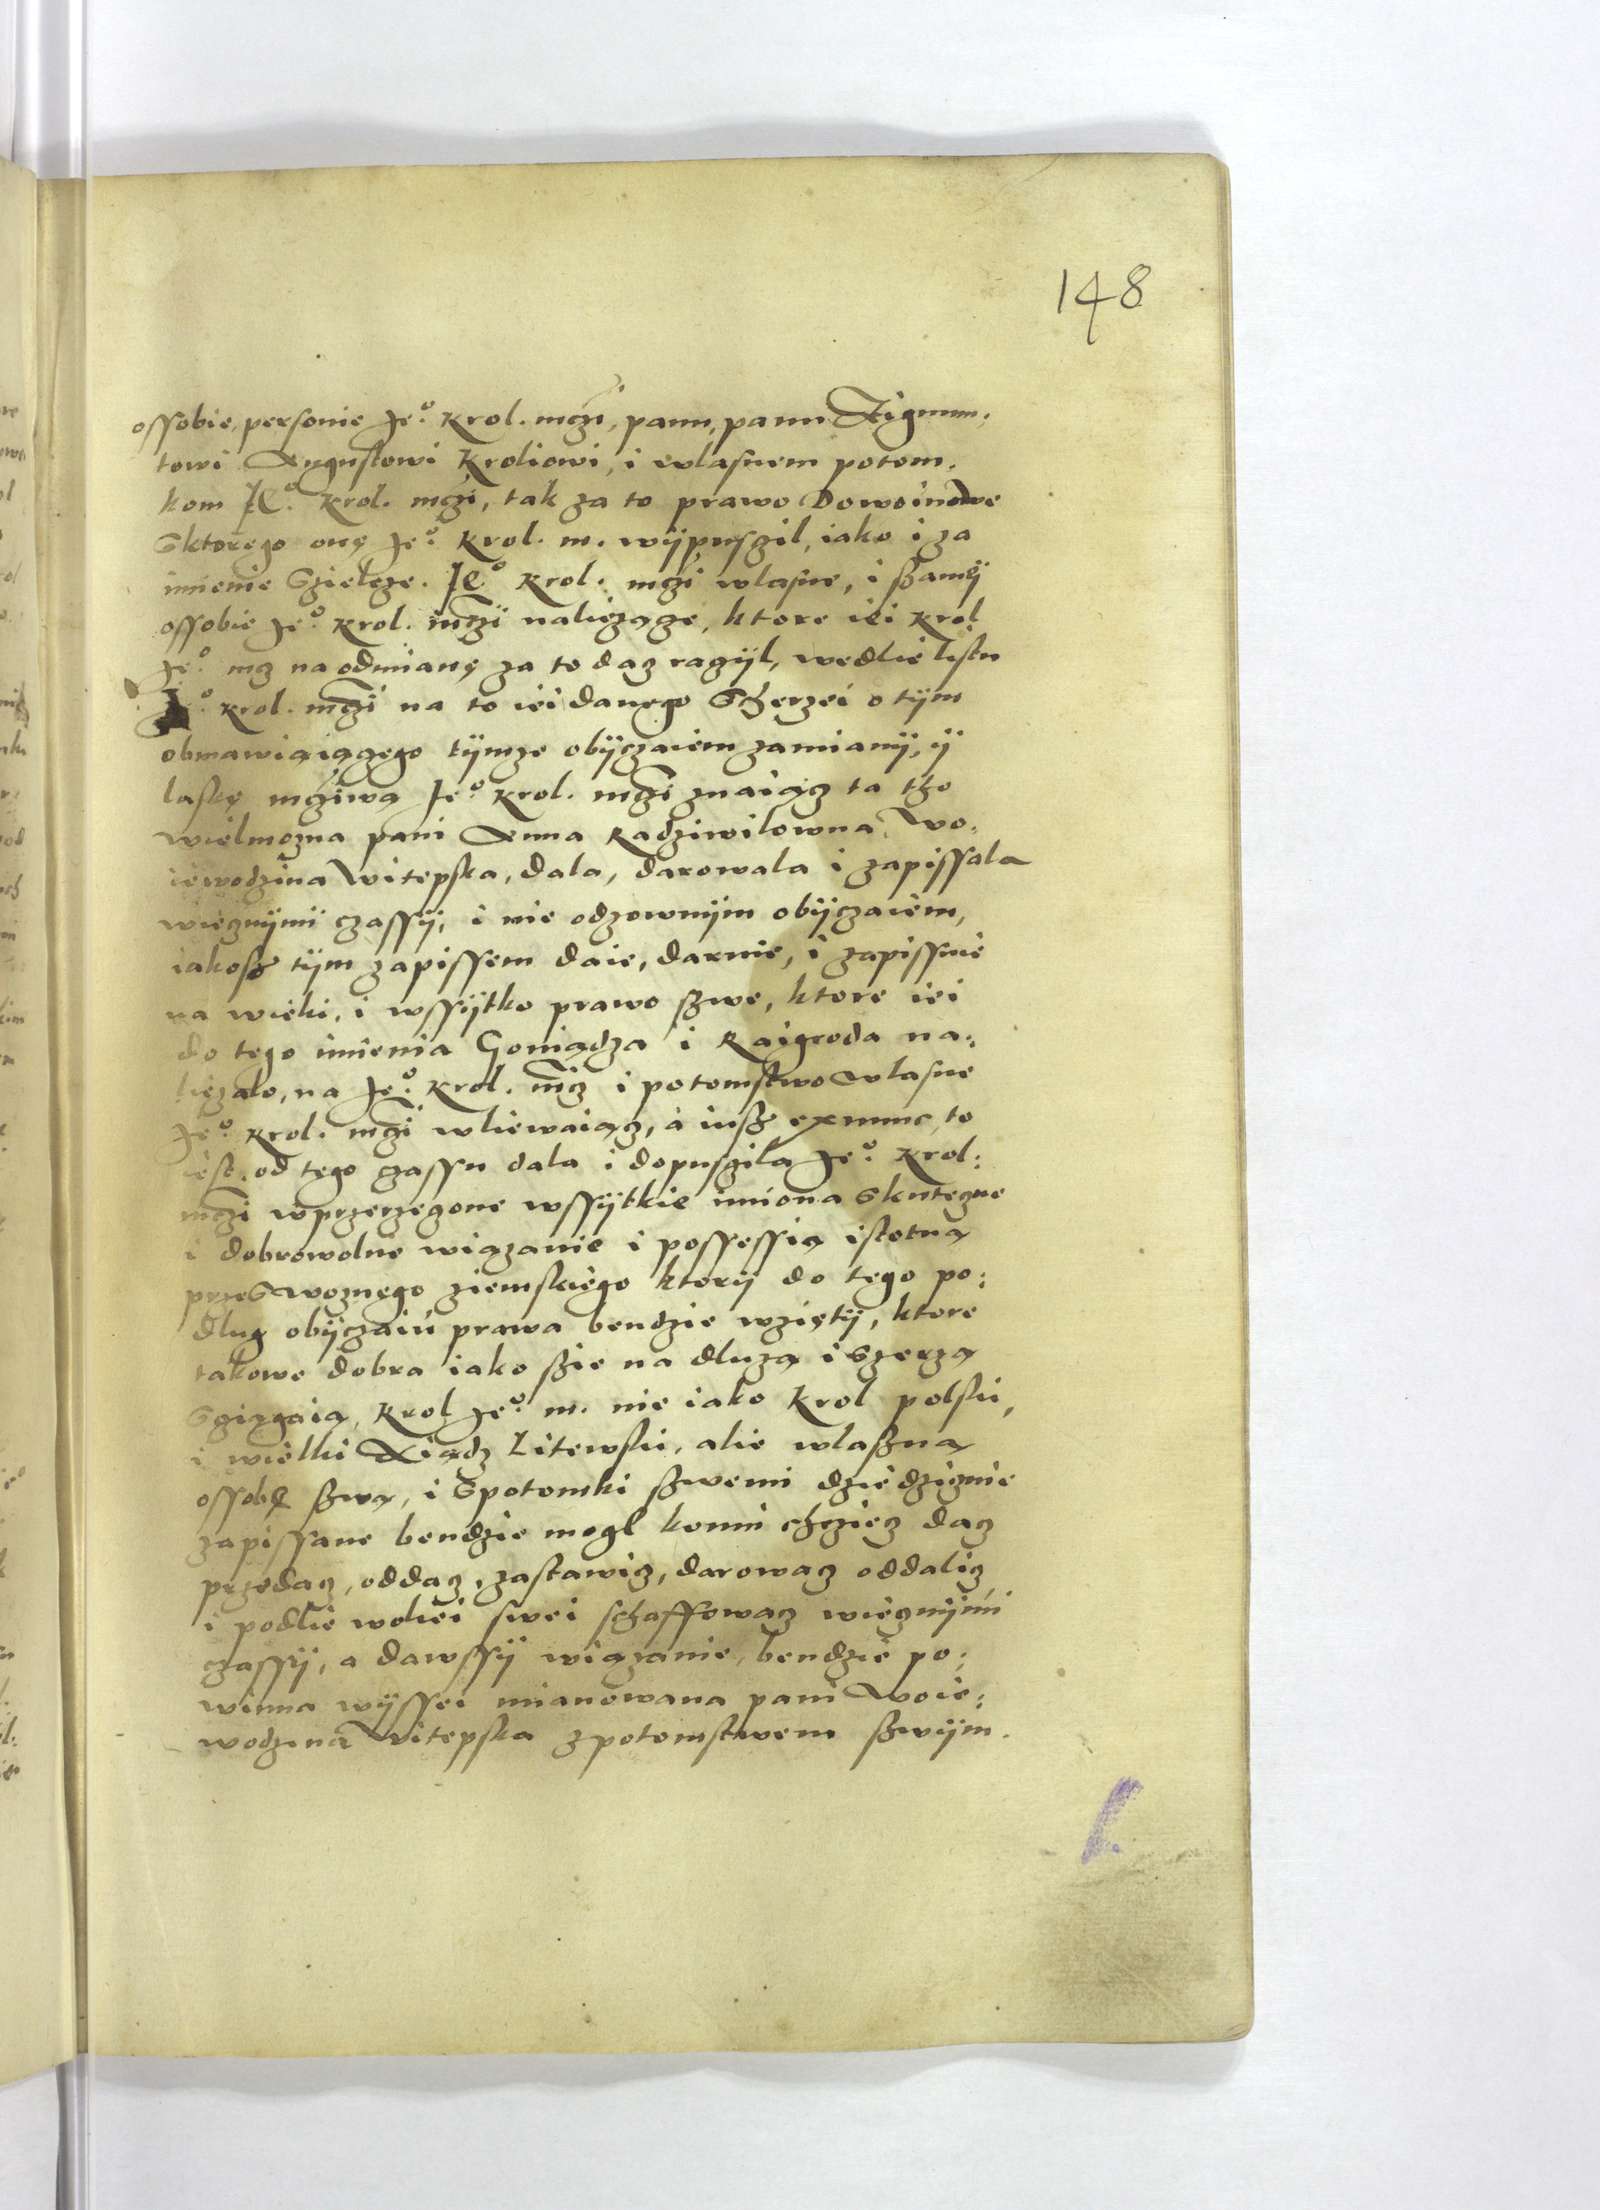 148
ossobie, personie Je⁰: Krol. mczi, panu, panu Zigmun:
towi Augustowi Kroliowi, i wlasnem potom:
kom JE⁰: Krol. mczi, tak za to prawo Dowoinowe
Sktorego onę Je⁰: Krol. m. wÿpusczil, iako i za
imienie Szielcze. JE⁰ Krol. mczi wlasne, i szamÿ
ossobie Je⁰: Krol. mczÿ naliezącze, ktore iei Krol
Je⁰: mcz na odmianę za to dacz raczÿl, wedlie listu
Je⁰: Krol. mczi na to iei danego Scherzei o tÿm
obmawiaiączego tÿmze obÿczaiem zamianÿ, ÿ
laskę mcziwą Je⁰: Krol. mczi znaiącz ta tho
wielmozna pani Anna Radziwilowna Wo:
iewodzina Witepska, dala, darowala i zapissala
wiecznÿmi czassÿ, i nie odzownÿm obÿczaiem,
iakosz tÿm zapissem daie, daruie, i zapissuie
na wieki, i wssÿtko prawo szwe, ktore iei
do tego imienia Goniądza i Raigroda na:
liezalo, na Je⁰: Krol. mcz i potomstwo wlasne
Je⁰: Krol. mczi wliewaiącz, a iusz exnunc, to
iest, od tego czassu dala i dopusczila Je⁰: Krol:
mczi wprzerzeczone wssÿtkie imiona Skuteczne
i dobrowolne wiązanie i possessią istotną
przeS woznego ziemskiego ktorÿ do tego po:
dlug obÿczaiu prawa bendzie wziętÿ, ktore
takowe dobra iako szie na dluzą i Szerzą
Scziągaią, Krol Je⁰: m. nie iako Krol polski,
i wielki Xiądz Litewski, alie wlaszną
ossobą szwą, i Spotomki szwemi dziedzicznie
zapissane bendzie mogl komu chcziecz dacz
przedacz, oddacz, zastawicz, darowacz oddalicz
i podlie woliei swei schaffowacz wiecznÿmi
czassÿ, a dawssÿ wiązanie, bendzie po:
winna wÿssei mianowana pani Woie:
wodzina Witepska zpotomstwem szwÿm.